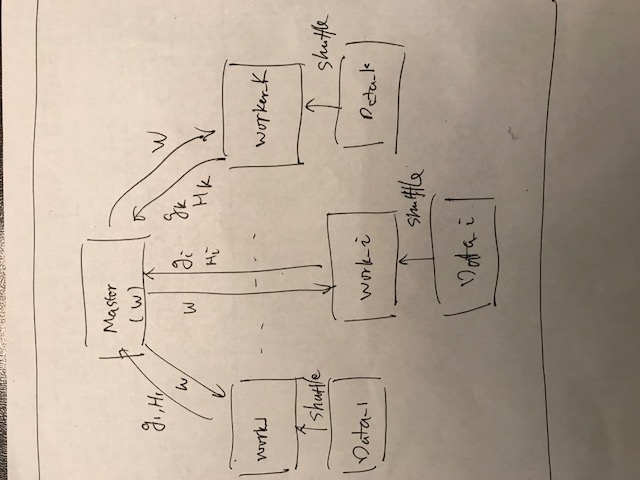 Master
(W)
g1, H1
W
W
gi
Hi
gk
Hk
W
work1
worker_K
shuffle
shuffle
Data_1
work_i
Data_k
shuffle
Data_i